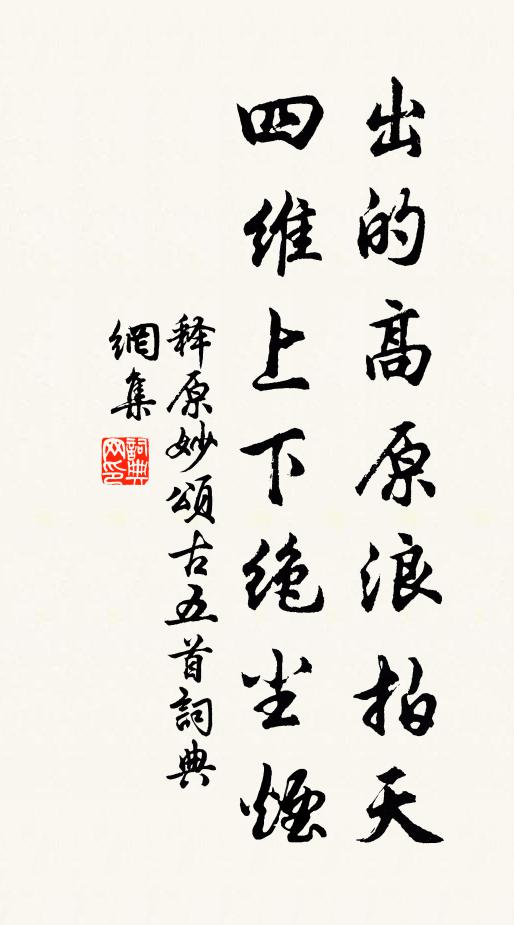 出的高原浪拍天
四维上下绝尘煙
释原妙頌古五首詞典
網集
詞典
网印